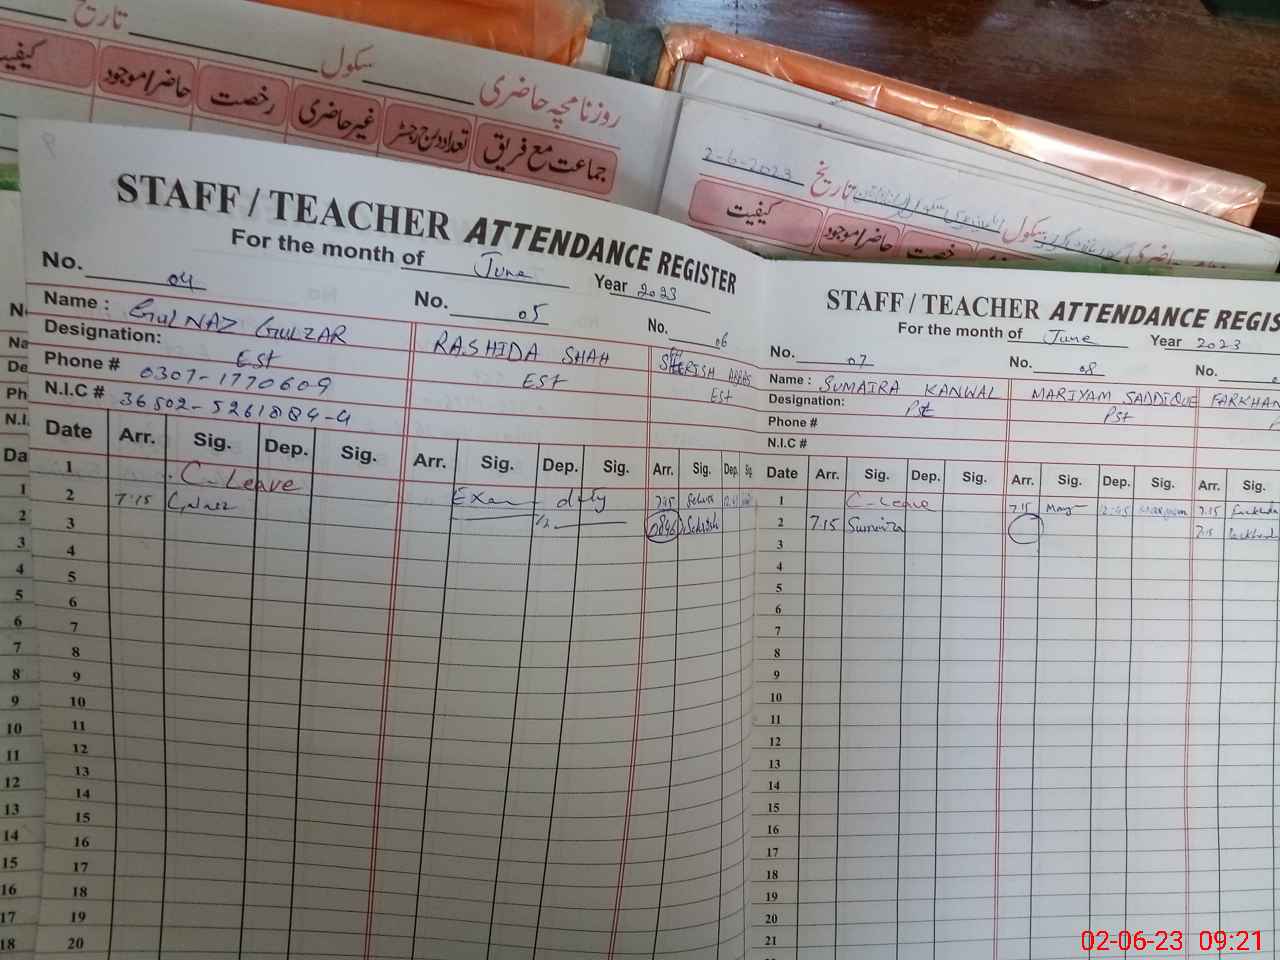 تاریخ
سکول
روزنامچہ حاضری
کیفیت
حاضر/موجود
رخصت
غیر حاضری
تعداد درج رجسٹر
جماعت مع فریق
2-6-2023
تاریخ
سکول
حاضری
کیفیت
حاضر/موجود
رخصت
STAFF / TEACHER ATTENDANCE REGISTER
For the month of June Year 2023
No. 04 No. 05 No. 06
Name : GULNAZ GULZAR RASHIDA SHAH
Designation: Est EST Est
Phone # 0307-1770609
N.I.C # 36502-5261884-4
Date Arr. Sig. Dep. Sig. Arr. Sig. Dep. Sig. Arr. Sig. Dep. Sig.
1 C-Leave Exam duty
2 7:15
3
4
5
6
7
8
9
10
11
12
13
14
15
16
17
18
19
20
STAFF / TEACHER ATTENDANCE REGIS
For the month of June Year 2023
No. 07 No. 08 No.
Name : SUMAIRA KANWAL MARIYAM SADDIQUE FARKHAN
Designation: Pst Pst
Phone #
N.I.C #
Date Arr. Sig. Dep. Sig. Arr. Sig. Dep. Sig. Arr. Sig.
1 C-Leave 7:15 2:45 Mariyam 7:15
2 7:15 Sumaira 7:15
3
4
5
6
7
8
9
10
11
12
13
14
15
16
17
18
19
20
21
1
2
3
4
5
6
7
8
9
10
11
12
13
14
15
16
17
18
02-06-23 09:21